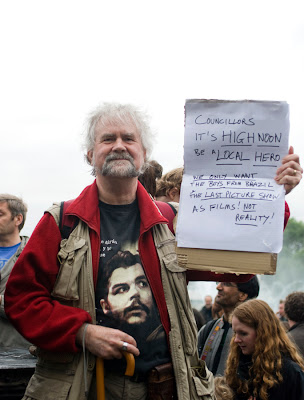 COUNCILLORS
IT'S HIGH NOON
BE A LOCAL HERO
WE ONLY WANT
THE BOYS FROM BRAZIL
THE LAST PICTURE SHOW
AS FILMS! NOT
REALITY!